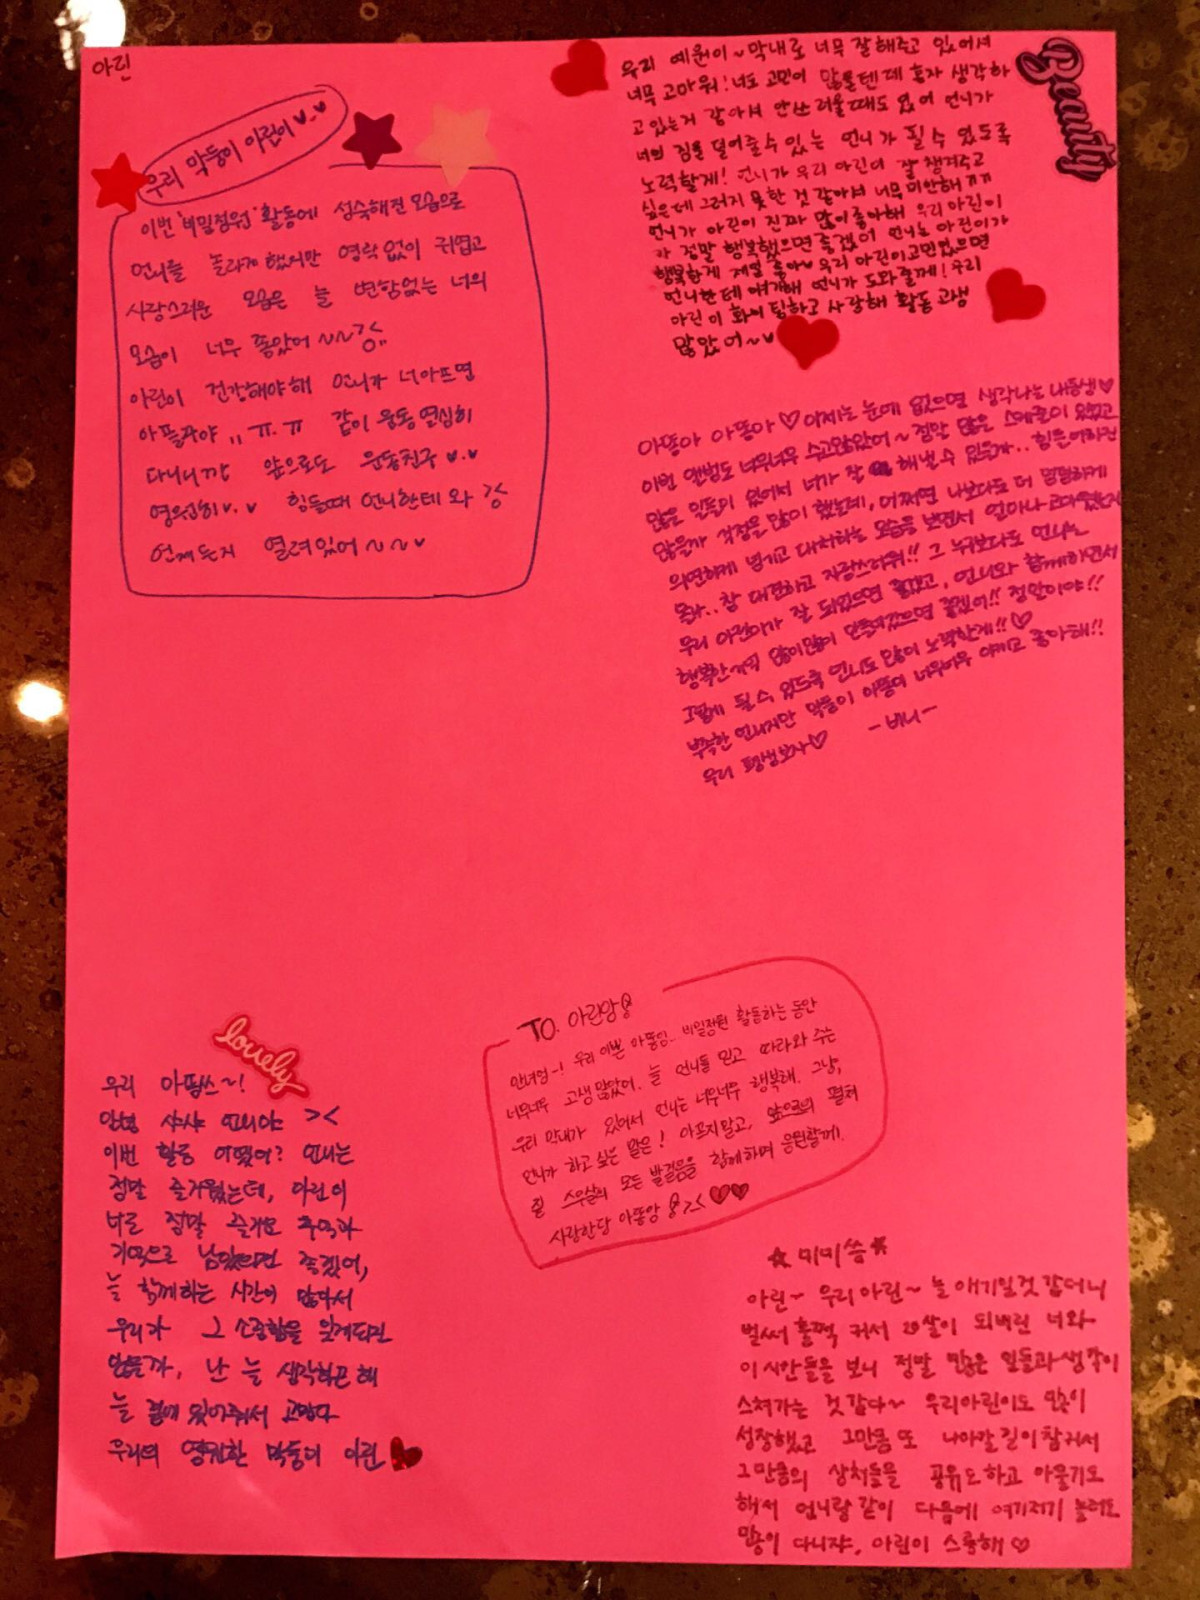 아린
우리 막둥이 아린이
이번 '비밀정원' 활동에 성숙해진 모습으로
언니를 놀라게 했지만 영락없이 귀엽고
사랑스러운 모습은 늘 변함없는 너의
모습이 너무 좋았어~~
아린이 건강해야해 언니가 너아프면
아플꺼야,, ㅠ.ㅠ 같이 운동 열심히
다니니깐 앞으로도 운동친구 ♥.♥
영원히 ♥.♥ 힘들때 언니한테 와
언제든지 열려있어~~~♥
우리 예원이~ 막내로 너무 잘해주고 있어서
너무 고마워! 너도 고민이 많을텐데 혼자 생각하
고 있는거 같아서 안쓰러울때도 있어 언니가
너의 짐을 덜어줄수 있는 언니가 될 수 있도록
노력할게! 언니가 우리 아린이 잘 챙겨주고
싶은데 그러지 못한 것 같아서 너무 미안해 ㅠㅠ
언니가 아린이 진짜 많이 좋아해 우리 아린이
가 정말 행복했으면 좋겠어 언니는 아린이가
행복한게 제일 좋아♥ 우리 아린이 고민있으면
언니한테 얘기해 언니가 도와줄께! 우리
아린이 화이팅하고 사랑해 활동 고생
많았어~♥
Beauty
아똥아 아똥아♡ 이제는 눈에 없으면 생각나는 내동생♡
이번 앨범도 너무너무 수고많았어~ 정말 많은 스케줄이 있었고
많은 일들이 있어서 너가 잘 해낼 수 있을까.. 힘들어하진
않을까 걱정을 많이 했는데, 어쩌면 나보다도 더 덤덤하게
의연하게 넘기고 대처하는 모습을 보면서 얼마나 고마웠는지
몰라.. 참 대견하고 자랑스러워!! 그 누구보다도 언니는
우리 아린이가 잘 되었으면 좋겠고, 언니와 함께하면서
행복한 기억 많이많이 만들어갔으면 좋겠어!! 정말이야!!
그렇게 될 수 있도록 언니도 많이 노력할게!!♡
부족한 언니지만 막둥이 아똥이 너무너무 아끼고 좋아해!!
우리 평생보자♡ -비니-
lovely
우리 아띰쓰~!
안녕 샤샤 언니야 ><
이번 활동 어땠어? 언니는
정말 즐거웠는데, 아린이
너도 정말 즐거운 추억과
기억으로 남았으면 좋겠어,
늘 함께하는 시간이 많아서
우리가 그 소중함을 잊게되진
않을까, 난 늘 생각하곤 해
늘 곁에 있어줘서 고맙다
우리의 영원한 막둥이 아린
TO. 아린앙
안녕엉~! 우리 이쁜 아똥잉~ 비밀정원 활동하는 동안
너무너무 고생 많았어. 늘 언니들 믿고 따라와 주는
우리 막내가 있어서 언니는 너무너무 행복해. 그냥,
언니가 하고 싶은 말은! 아프지말고, 앞으로의 펼쳐
질 스무살의 모든 발걸음을 함께하며 응원할께!
사랑한당 아똥앙 ><♥♥
☆미미씀☆
아린~ 우리아린~ 늘 애기일것 같더니
벌써 훌쩍 커서 20살이 되버린 너와
이 시간들을 보니 정말 많은 일들과 생각이
스쳐가는 것 같다~ 우리아린이도 많이
성장했고 그만큼 또 나아갈 길이 참 커서
그만큼의 상처들을 공유도하고 아물기도
해서 언니랑 같이 다음에 여기저기 놀러도
많이 다니쟈, 아린이 스릉해♡